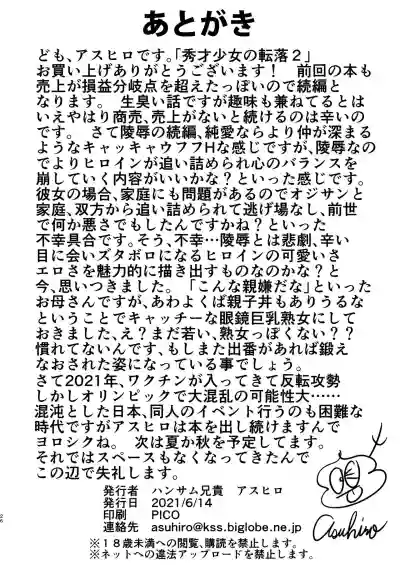 あとがき
ども、アスヒロです。「秀才少女の転落２」
お買い上げありがとうございます！　前回の本も
売上が損益分岐点を超えたっぽいので続編と
なります。　生臭い話ですが趣味も兼ねてるとは
いえやはり商売、売上がないと続けるのは辛いの
です。　さて陵辱の続編、純愛ならより仲が深まる
ようなキャッキャウフフHな感じですが、陵辱なの
でよりヒロインが追い詰められ心のバランスを
崩していく内容がいいかな？といった感じです。
彼女の場合、家庭にも問題があるのでオジサンと
家庭、双方から追い詰められて逃げ場なし、前世
で何か悪さでもしたんですかね？といった
不幸具合です。そう、不幸…陵辱とは悲劇、辛い
目に会いズタボロになるヒロインの可愛いさ
エロさを魅力的に描き出すものなのかな？と
今、思いつきました。「こんな親嫌だな」といった
お母さんですが、あわよくば親子丼もありうるな
ということでキャッチーな眼鏡巨乳熟女にして
おきました、え？まだ若い、熟女っぽくない？？
慣れてないんです、もしまた出番があれば鍛え
なおされた姿になっている事でしょう。
さて2021年、ワクチンが入ってきて反転攻勢
しかしオリンピックで大混乱の可能性大……
混沌とした日本、同人のイベント行うのも困難な
時代ですがアスヒロは本を出し続けますんで
ヨロシクね。　次は夏か秋を予定してます。
それではスペースもなくなってきたんで
この辺で失礼します。
発行者　ハンサム兄貴　アスヒロ
発行日　2021/6/14
印刷　PICO
連絡先　asuhiro@kss.biglobe.ne.jp
※１８歳未満への閲覧、購読を禁止します。
※ネットへの違法アップロードを禁止します。
Asuhiro
26